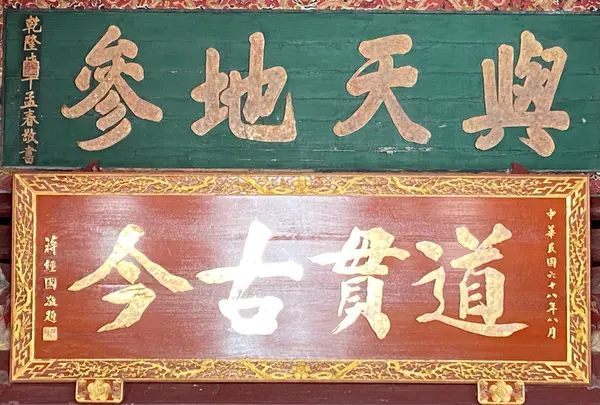 與天地參
乾隆時年孟春敬書
中華民國六十八年八月
道貫古今
蔣經國敬題